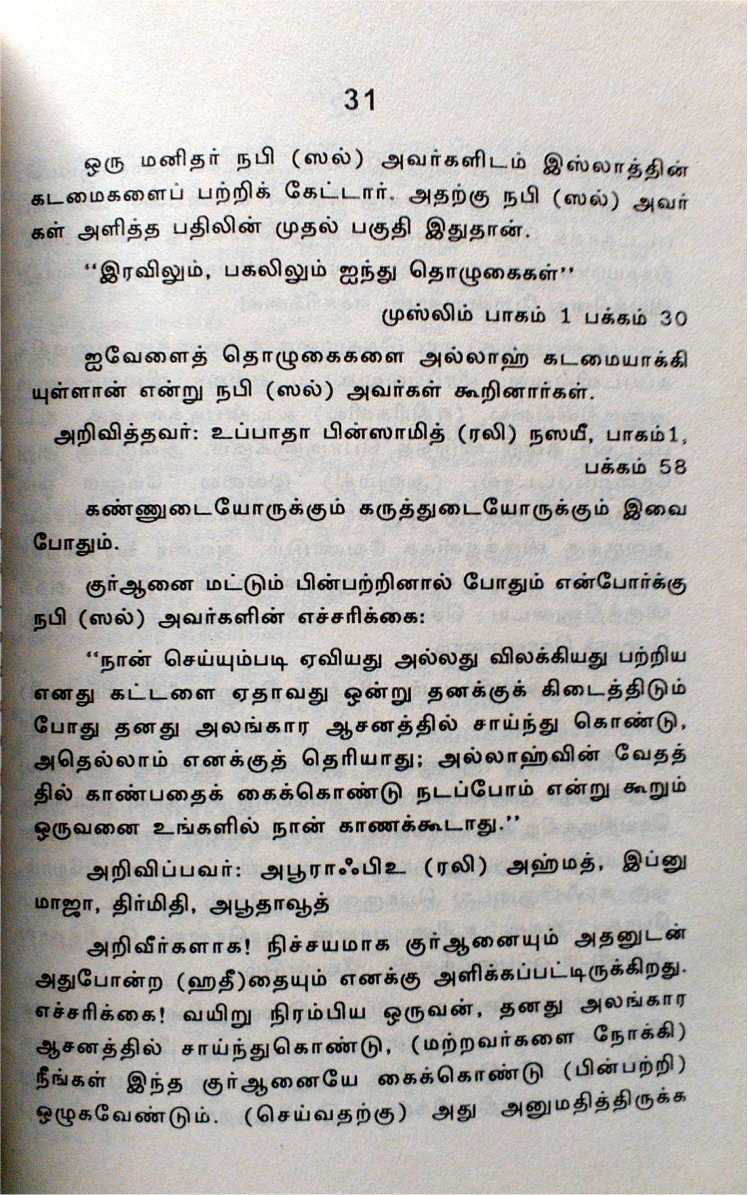 31
ஒரு மனிதர் நபி (ஸல்) அவர்களிடம் இஸ்லாத்தின்
கடமைகளைப் பற்றிக் கேட்டார். அதற்கு நபி (ஸல்) அவர்
கள் அளித்த பதிலின் முதல் பகுதி இதுதான்.
‘‘இரவிலும், பகலிலும் ஐந்து தொழுகைகள்’’
முஸ்லிம் பாகம் 1 பக்கம் 30
ஐவேளைத் தொழுகைகளை அல்லாஹ் கடமையாக்கி
யுள்ளான் என்று நபி (ஸல்) அவர்கள் கூறினார்கள்.
அறிவித்தவர்: உப்பாதா பின்ஸாமித் (ரலி) நஸயீ, பாகம்1,
பக்கம் 58
கண்ணுடையோருக்கும் கருத்துடையோருக்கும் இவை
போதும்.
குர்ஆனை மட்டும் பின்பற்றினால் போதும் என்போர்க்கு
நபி (ஸல்) அவர்களின் எச்சரிக்கை:
‘‘நான் செய்யும்படி ஏவியது அல்லது விலக்கியது பற்றிய
எனது கட்டளை ஏதாவது ஒன்று தனக்குக் கிடைத்திடும்
போது தனது அலங்கார ஆசனத்தில் சாய்ந்து கொண்டு,
அதெல்லாம் எனக்குத் தெரியாது; அல்லாஹ்வின் வேதத்
தில் காண்பதைக் கைக்கொண்டு நடப்போம் என்று கூறும்
ஒருவனை உங்களில் நான் காணக்கூடாது.’’
அறிவிப்பவர்: அபூராஃபிஉ (ரலி) அஹ்மத், இப்னு
மாஜா, திர்மிதி, அபூதாவூத்
அறிவீர்களாக! நிச்சயமாக குர்ஆனையும் அதனுடன்
அதுபோன்ற (ஹதீ)தையும் எனக்கு அளிக்கப்பட்டிருக்கிறது.
எச்சரிக்கை! வயிறு நிரம்பிய ஒருவன், தனது அலங்கார
ஆசனத்தில் சாய்ந்துகொண்டு, (மற்றவர்களை நோக்கி)
நீங்கள் இந்த குர்ஆனையே கைக்கொண்டு (பின்பற்றி)
ஒழுகவேண்டும். (செய்வதற்கு) அது அனுமதித்திருக்க